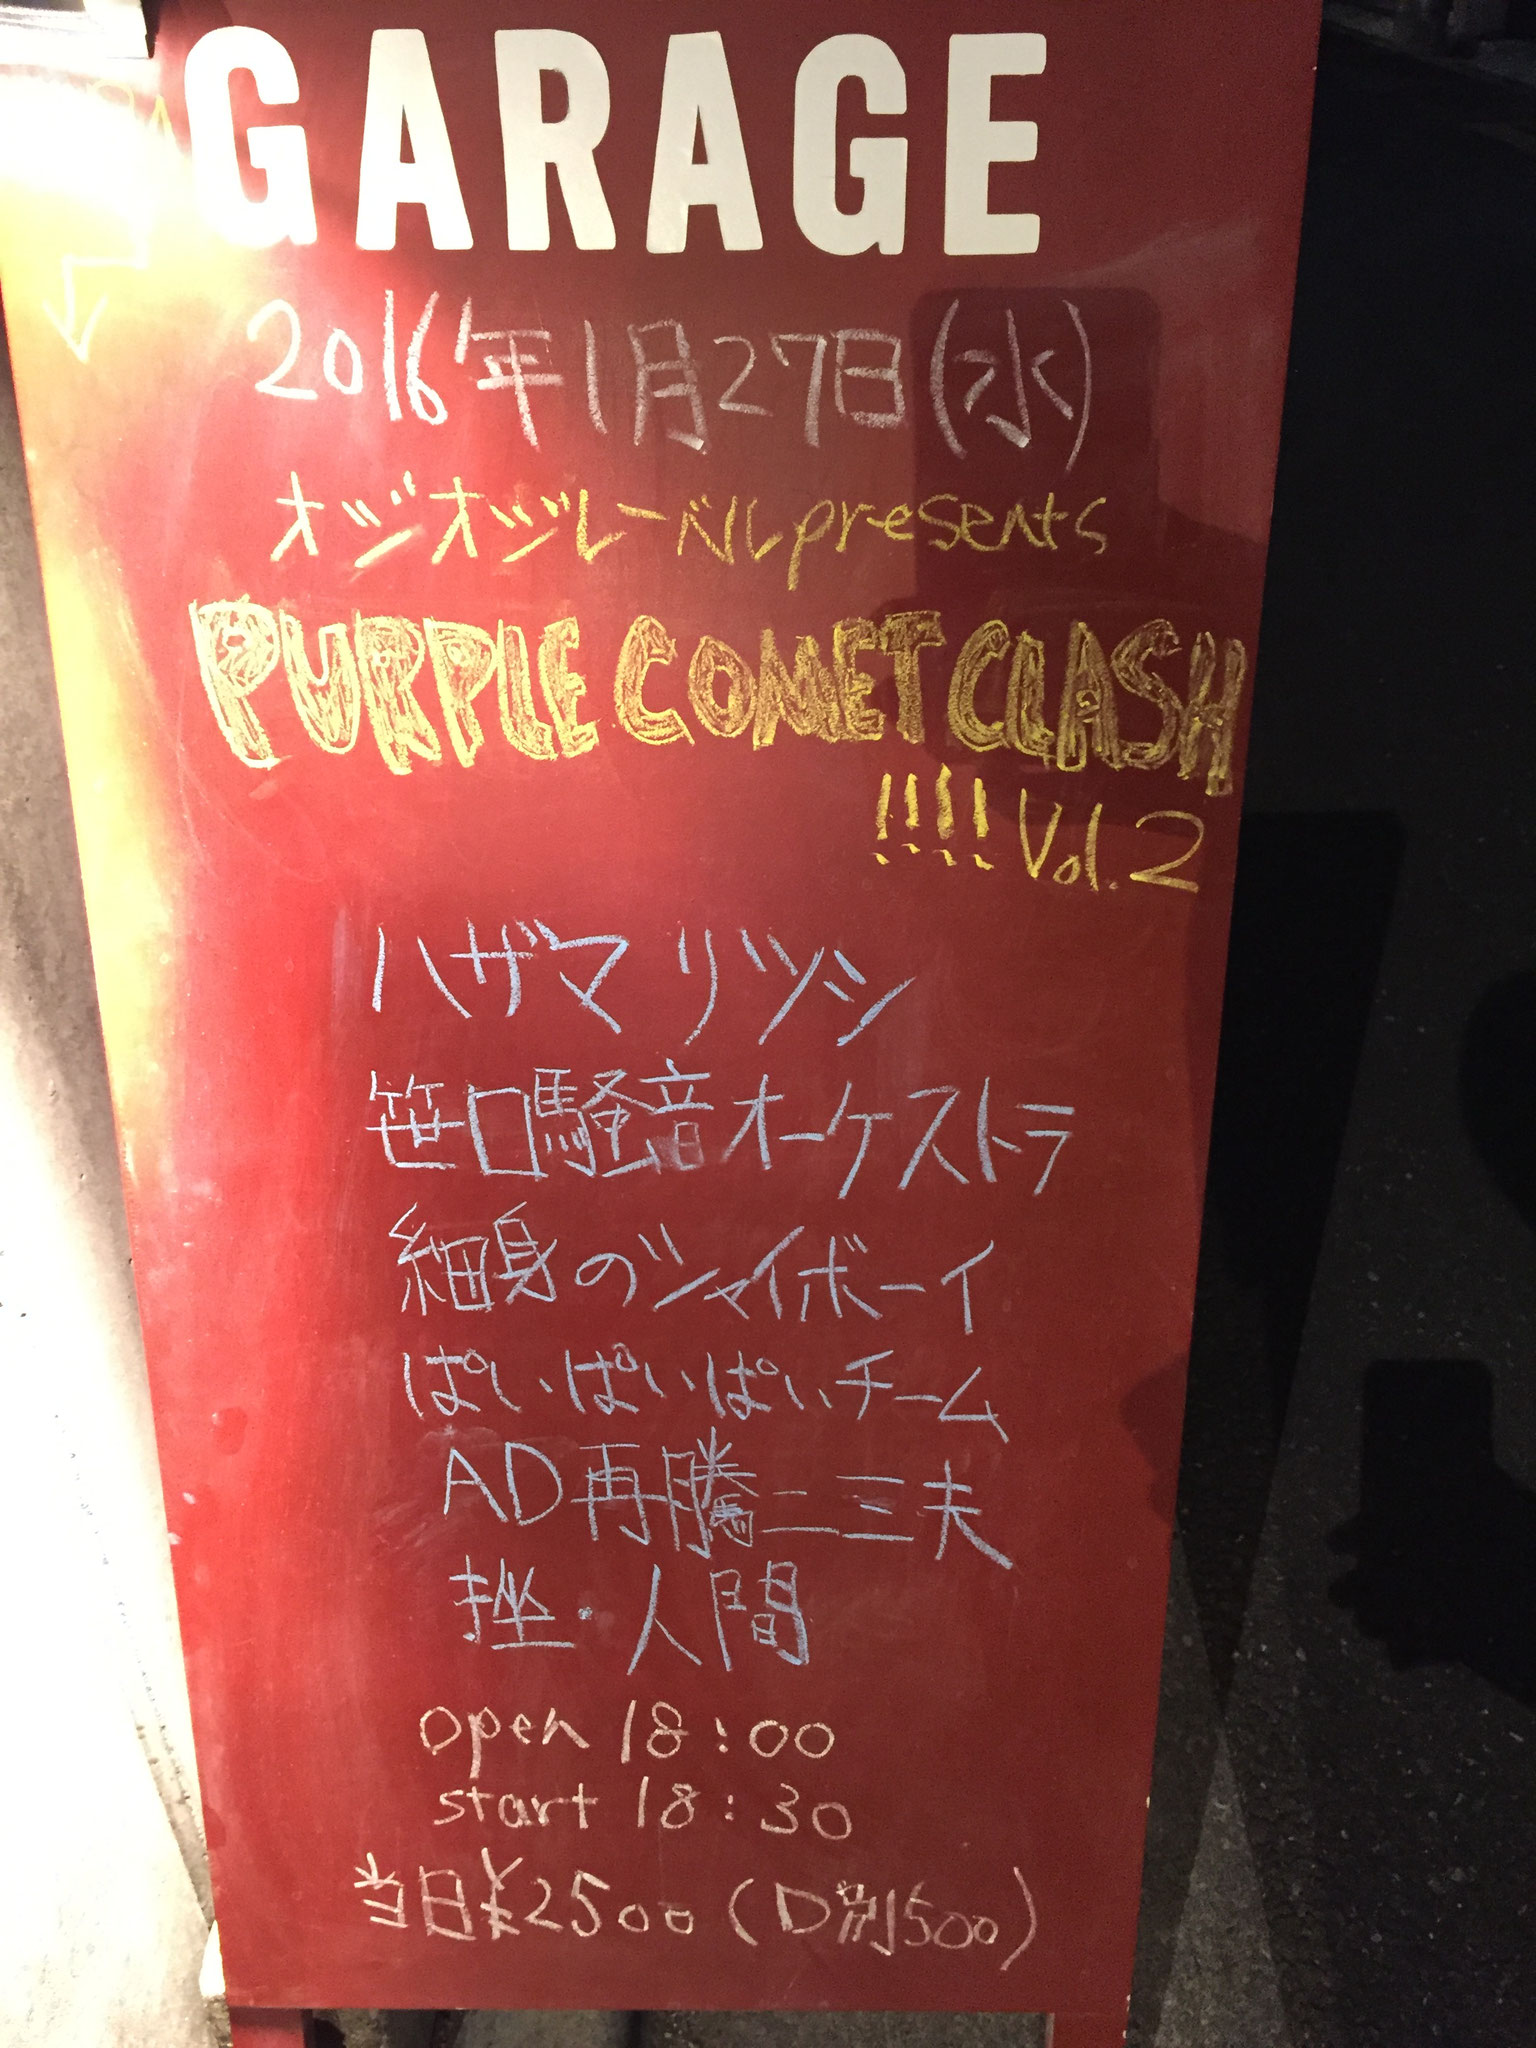 GARAGE
2016年1月27日(水)
オジオジレーベルpresents
PURPLE COMET CLASH
!!!! Vol.2
ハザマ リツシ
笹口騒音オーケストラ
細身のシャイボーイ
ぱいぱいぱいチーム
AD再騰二三夫
挫・人間
open 18:00
start 18:30
当日¥2500(D別500)